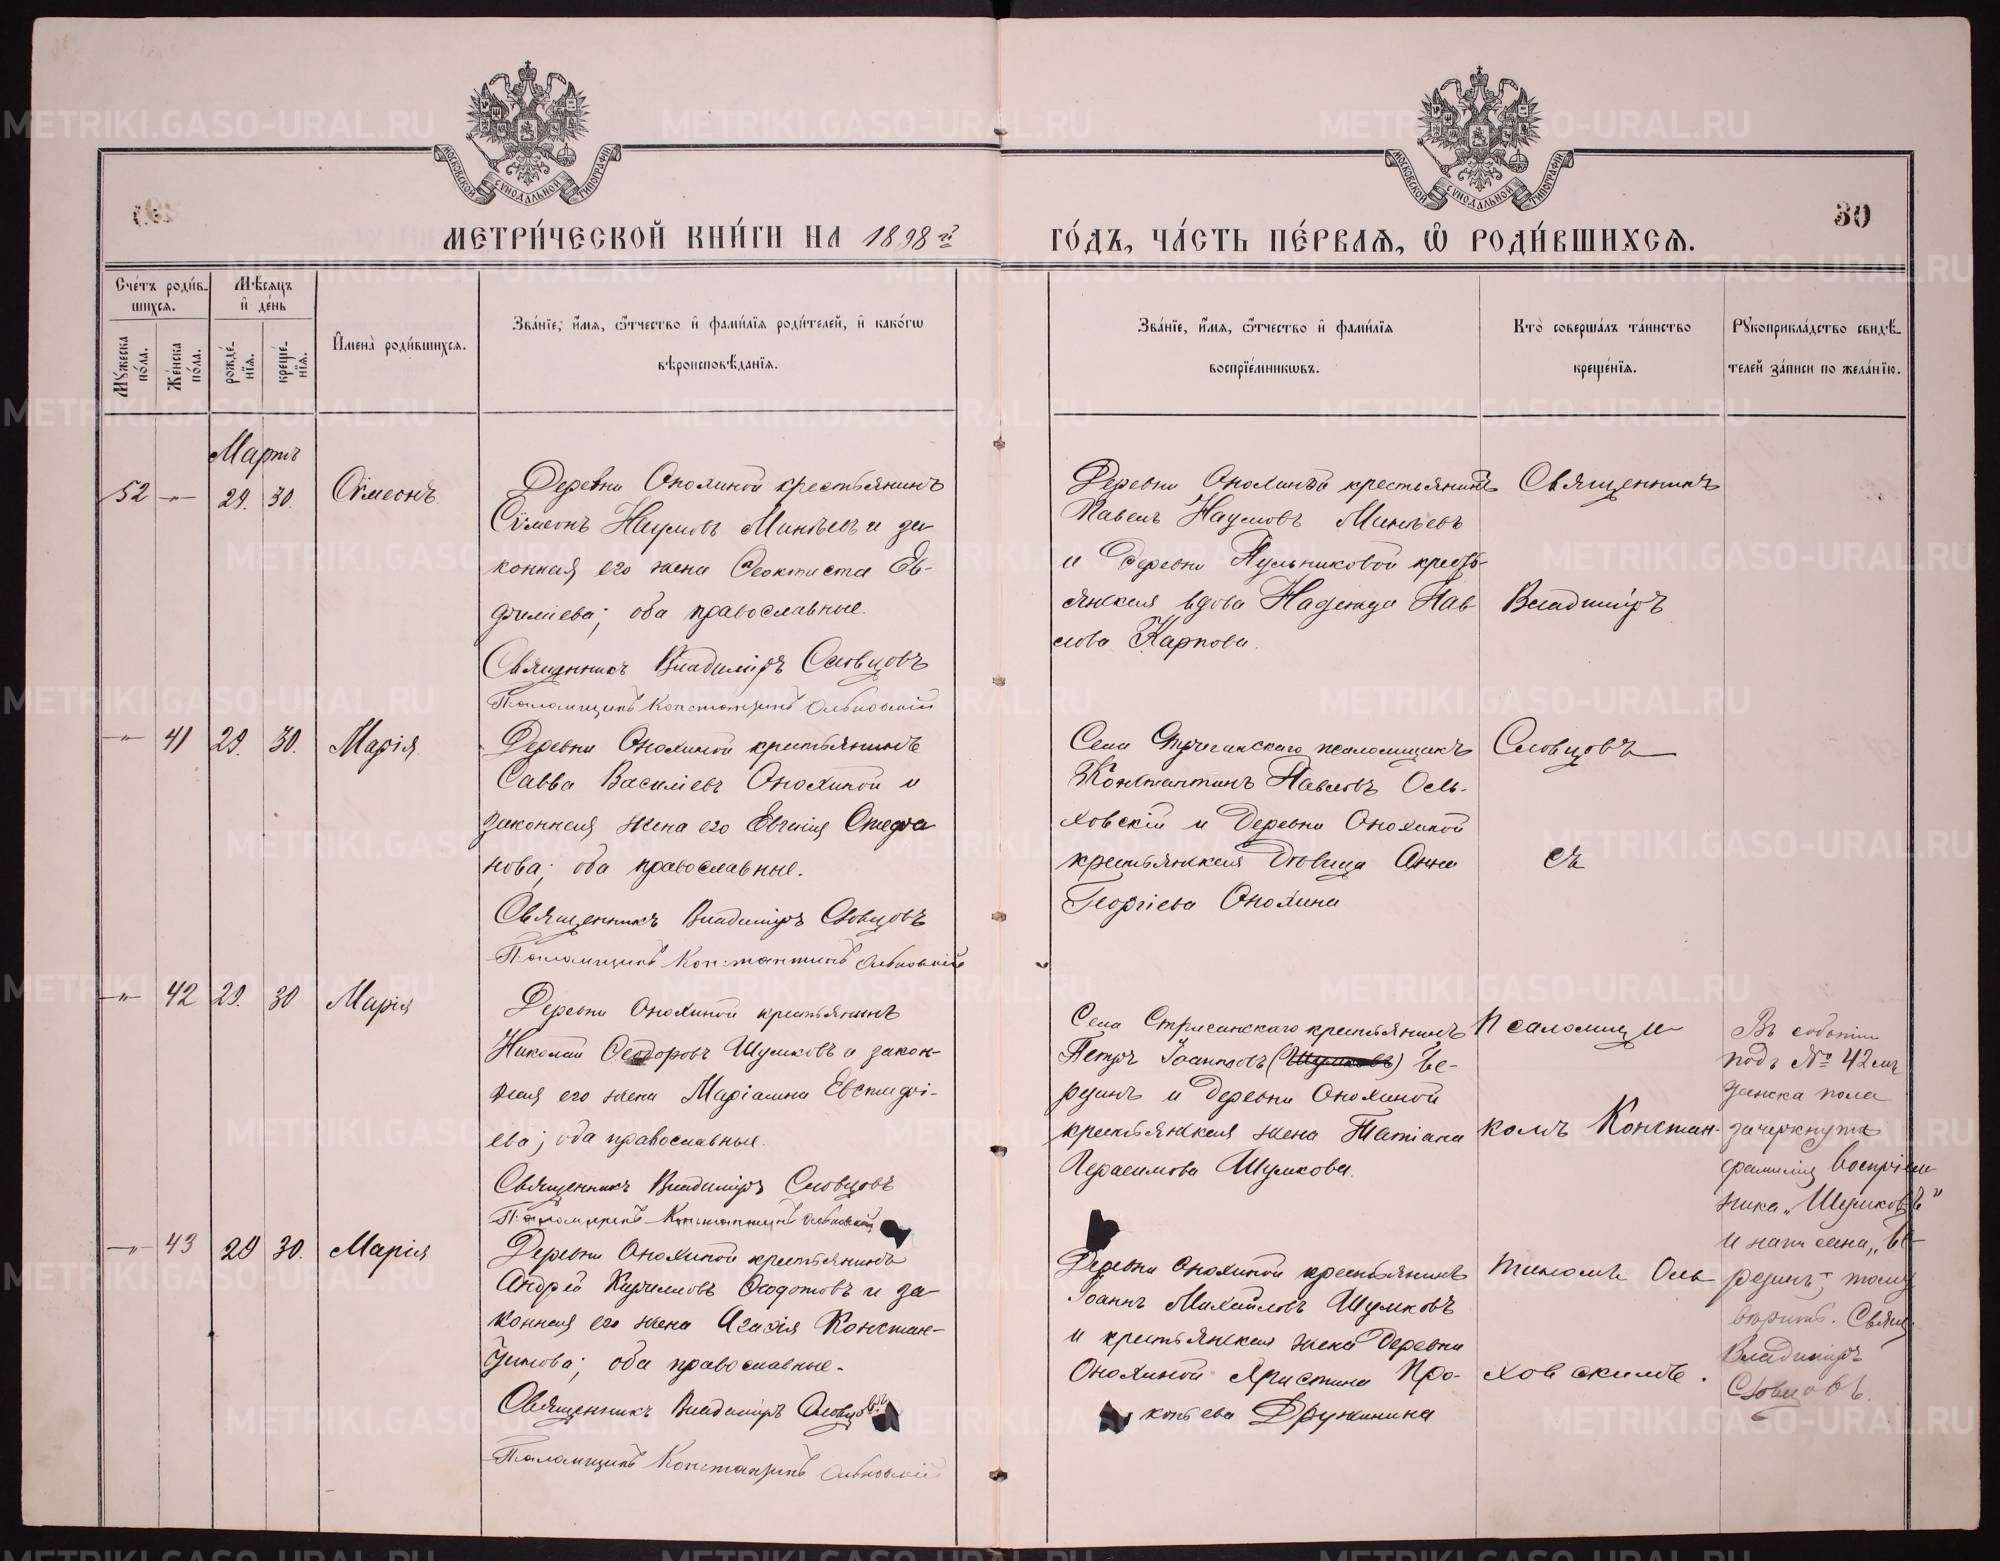 МОСКОВСКОЙ СѴНОДАЛЬНОЙ ТИПОГРАФІИ
МОСКОВСКОЙ СѴНОДАЛЬНОЙ ТИПОГРАФІИ
30
МЕТРИ́ЧЕСКОЙ КНИ́ГИ НА 1898й
ГО́ДЪ, ЧА́СТЬ ПЕ́РВАЯ, Ѡ РОДИ́ВШИХСЯ.
Сче́тъ роди́в-
шихся.
Мѣсяцъ
и де́нь
Мꙋ́жеска по́ла.
Же́нска по́ла.
рожде́нїя.
креще́нїя.
Имена̀ роди́вшихся.
Зва́нїе, и́мя, ѻ҆́тчество и фами́лїя роди́телей, и како́гѡ
вѣроисповѣ́данїя.
Зва́нїе, и́мя, ѻ҆́тчество и фами́лїя
воспрїе́мникѡвъ.
Кто̀ соверша́лъ та́инство
креще́нїя.
Рꙋкоприкла́дство свидѣ́-
телей за́писи по жела́нїю.
Мартъ
52 -„- 29. 30. Сѵмеонъ.
Деревни Онохиной крестьянинъ
Сѵмеонъ Наумовъ Минѣевъ и за-
конная его жена Ѳеоктиста Ев-
фиміева; оба православные.
Священникъ Владиміръ Словцовъ
Псаломщикъ Константинъ Ольховскій
Деревни Онохиной крестьянинъ
Павелъ Наумовъ Минѣевъ
и деревни Пульниковой кресть-
янская вдова Надежда Пав-
лова Карпова.
Священникъ
Владиміръ
-„- 41 29. 30. Марія
Деревни Онохиной крестьянинъ
Савва Василіевъ Онохиной и
законная жена его Евгенія Стефа
нова; оба православные.
Священникъ Владиміръ Словцовъ
Псаломщикъ Константинъ Ольховскій
Села псаломщикъ
Константинъ Павловъ Оль-
ховскій и деревни Онохиной
крестьянская дѣвица Анна
Георгіева Онохина
Словцовъ
съ
-„- 42 29. 30 Марія
Деревни Онохиной крестьянинъ
Николай Ѳеодоровъ Шумковъ и закон-
ная его жена Маріамна Евстафі-
ева; оба православные.
Священникъ Владиміръ Словцовъ
Псаломщикъ Константинъ Ольховскій
Села крестьянинъ
Петръ Іоанновъ (Шумковъ) Ве-
резинъ и деревни Онохиной
крестьянская жена Татіана
Герасимова Шумкова.
псаломщи-
комъ Констан-
Въ событіи
подъ № 42 мъ
женска пола
зачеркнута
фамилія воспріем
ника „Шумковъ"
и написана „Ве-
резинъ", тому
вѣрить. Свящ.
Владиміръ
Словцовъ.
-„- 43 29 30. Марія
Деревни Онохиной крестьянинъ
Андрей Кирилловъ Ѳедотовъ и за-
конная его жена Агафія Констан-
тинова; оба православные.
Священникъ Владиміръ Словцовъ
Псаломщикъ Константинъ Ольховскій
Деревни Онохиной крестьянинъ
Іоаннъ Михайловъ Шумковъ
и крестьянская жена деревни
Онохиной Христина Про-
копьева Дружинина
тиномъ Оль
ховскимъ.